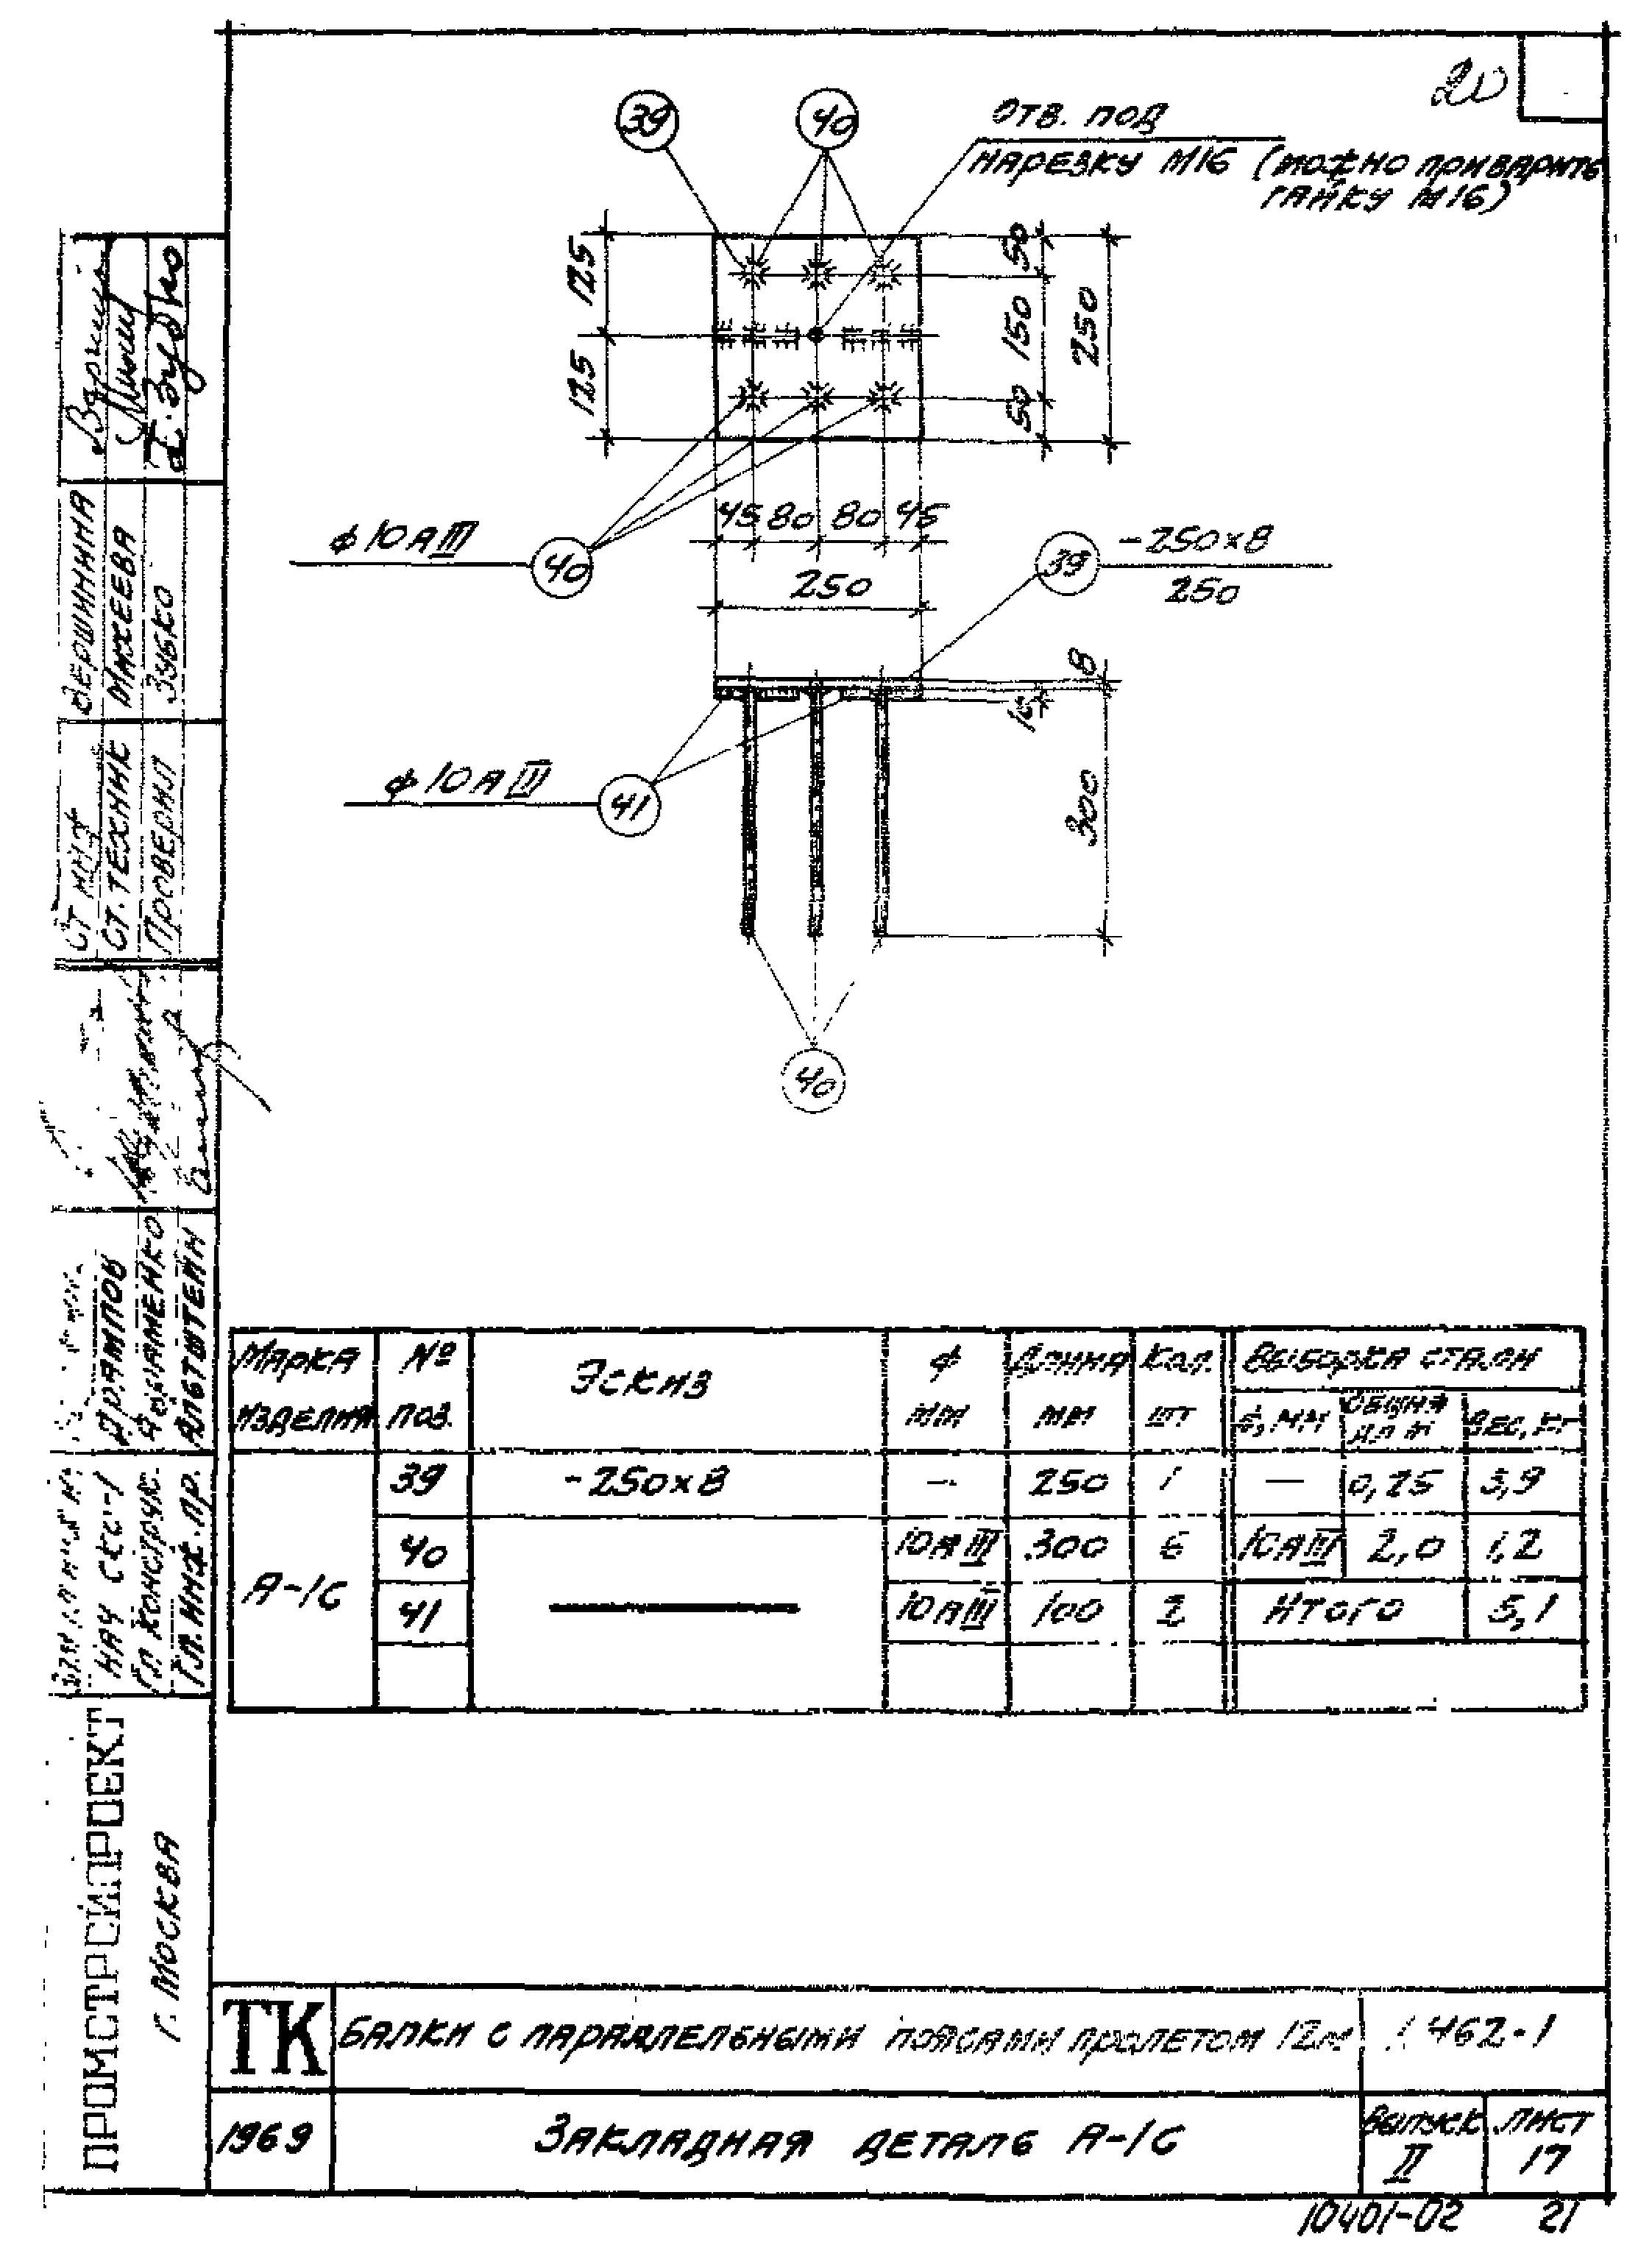 20
39
40
Отв. под
нарезку М16 (можно приварить
гайку М16)
125
125
50
150
50
250
45 80 80 45
250
ф10АIII
40
39
-250×8
250
8
10
300
ф10АIII
41
40
Марка изделия
№ поз.
Эскиз
ф мм
Длина мм
Кол. шт
Выборка стали
ф, мм
Общая дл. м
Вес, кг
А-1С
39 -250×8 — 250 1 — 0,25 3,9
40 10АIII 300 6 10АIII 2,0 1,2
41 10АIII 100 2 Итого 5,1
Ст. инж Вершинина
Ст. техник Михеева
Проверил Зубко
Нач СКС-1
Гл конструк. Абраменко
Гл. инж. пр. Альтштейн
ПРОМСТРОЙПРОЕКТ
г. Москва
ТК
Балки с параллельными поясами пролетом 12м
1.462-1
1969
Закладная деталь А-1С
Выпуск
II
Лист
17
10401-02
21